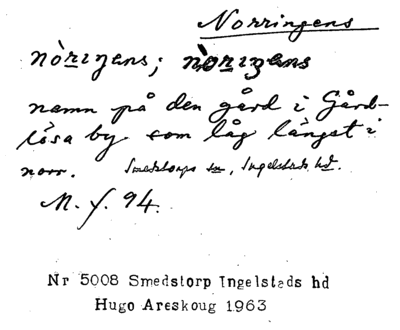 Norringens
nòriŋens; nòriŋens
namn på den gård i Gård-
lösa by som låg längst i
norr. Smedstorps sn, Ingelstads hd.
M. f. 94.
Nr 5008 Smedstorp Ingelstads hd
Hugo Areskoug 1963